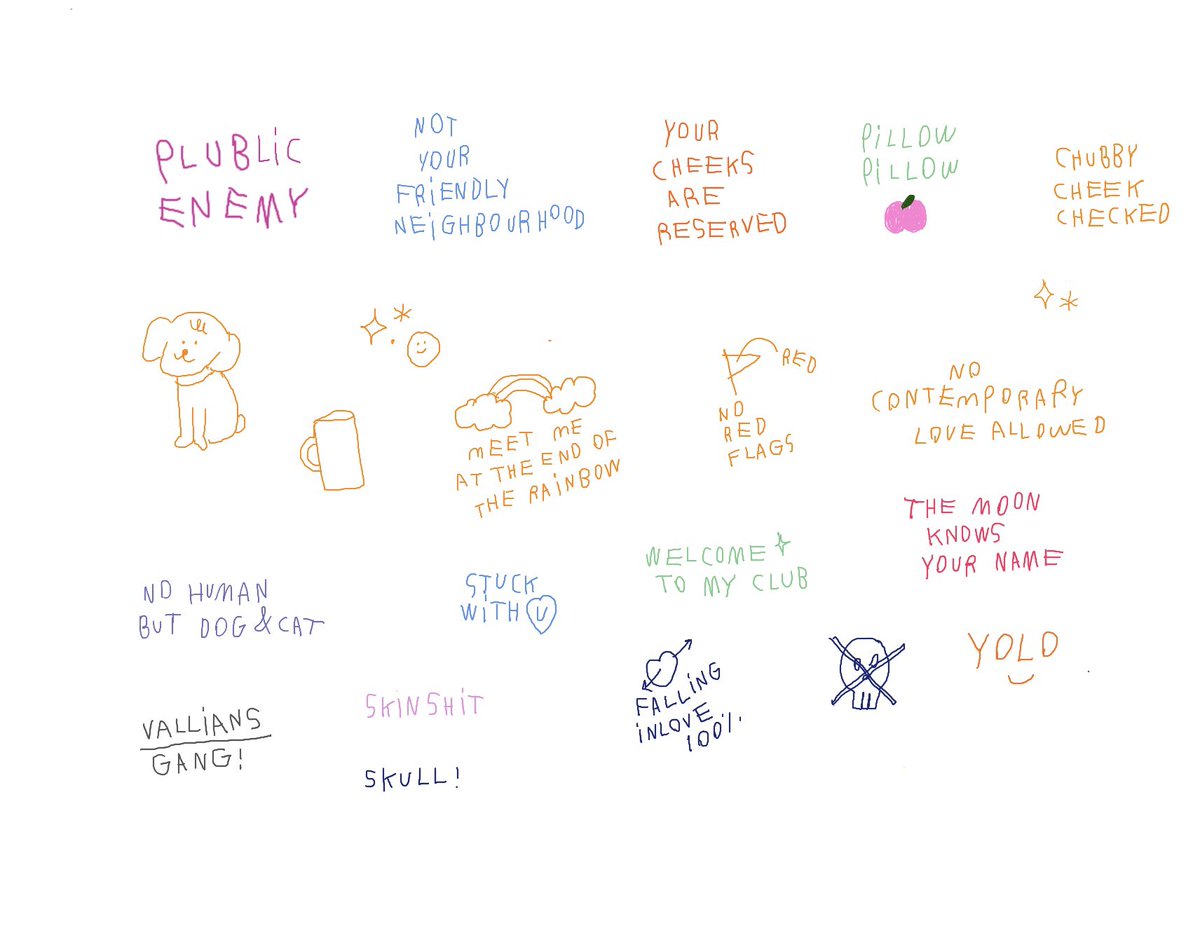 PLUBLiC
ENEMY
NOT
YOUR
FRiENDLY
NEiGHBOURHOOD
YOUR
CHEEKS
ARE
RESERVED
PiLLOW
PiLLOW
CHUBBY
CHEEK
CHECKED
MEET ME
AT THE END OF
THE RAiNBOW
RED
NO
RED
FLAGS
NO
CONTEMPORARY
LOVE ALLOWED
NO HUMAN
BUT DOG & CAT
STUCK
WiTH U
WELCOME
TO MY CLUB
THE MOON
KNOWS
YOUR NAME
VALLiANS
GANG!
SKiNSHiT
SKULL!
FALLiNG
iNLOVE
100%
YOLO